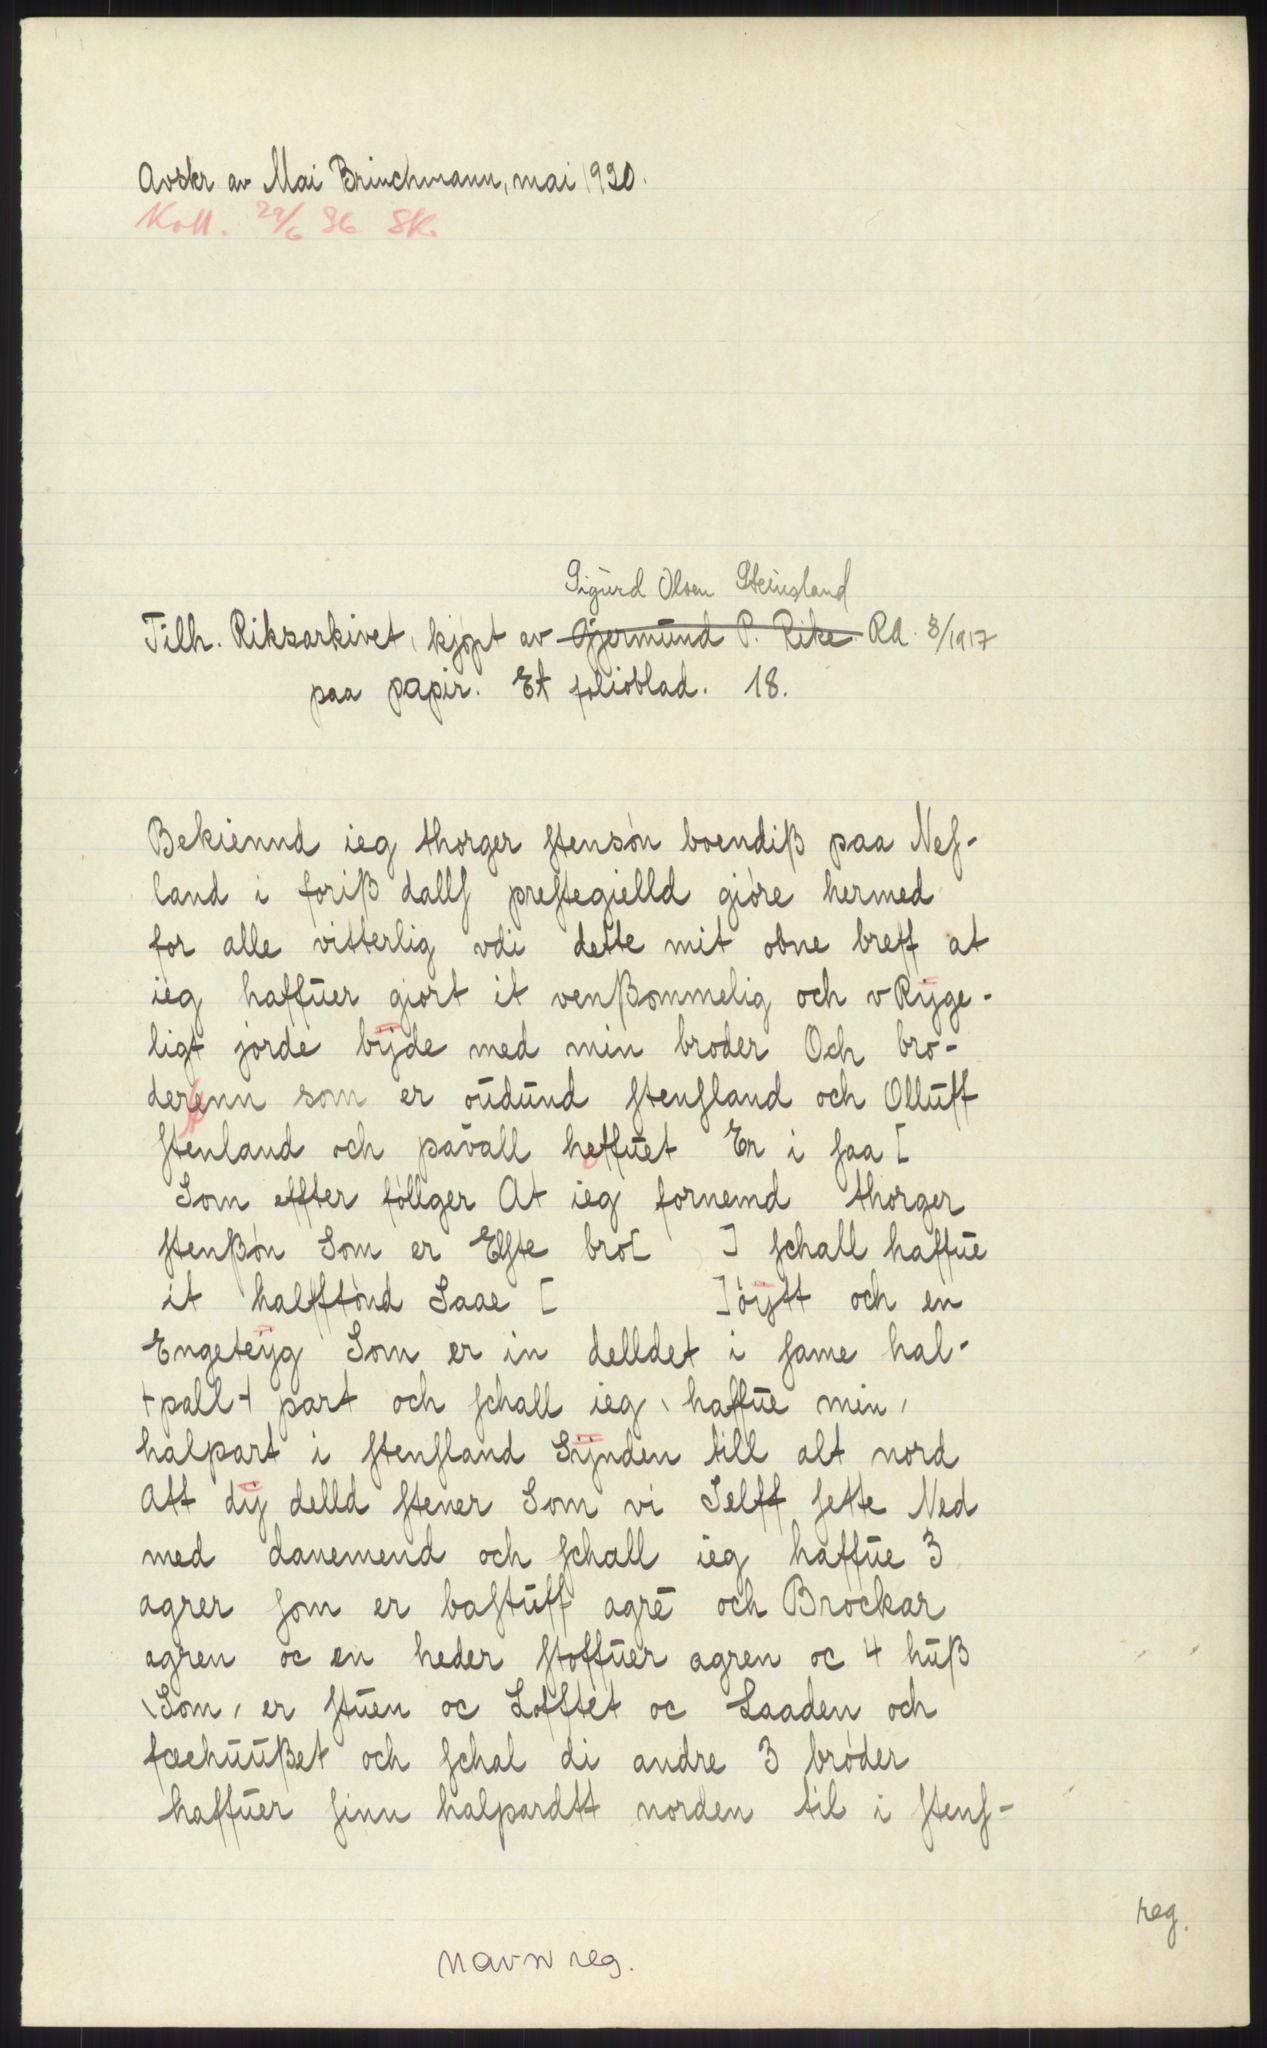 Avskr av Mai Brinchmann, mai 1920.
Koll. 29/6 36 SK.
Sigurd Olsen Steinsland
Tilh. Riksarkivet, kjøpt av Gjermund P. Rike RA. 8/1917
paa papir. Et folioblad. 18.
Bekiennd ieg thorger stensøn boendiß paa Nes-
land i foriß dalls prestegielld giøre hermed
for alle vitterlig vdi dette mit obne breff at
ieg haffuer giort it venßommelig och vRÿge-
ligt jorde bÿde med min broder Och brø-
derenn som er oudund stensland och Olluff
stenland och pavall heffuet Er i saa [
Som effter föllger At ieg fornemd thorger
stenßøn Som er Elste bro[ ] schall haffue
it halfftönd Saae [ ]öÿtt och en
Engeteÿg Som er in delldet i same hal-
+pall+ part och schall ieg, haffue min,
halpart i stensland Sÿnden till alt nord
att dÿ delld stener Som vi Selff sette Ned
med danemend och schall ieg haffue 3
agrer som er bastuff agre och Brockar
agren oc en heder stoffuer agren oc 4 huß
\Som, er stuen oc Lofftet oc Laaden och
fœehuußet och schal di andre 3 brøder
haffuer sinn halpardtt norden til i stens-
reg.
navn reg.